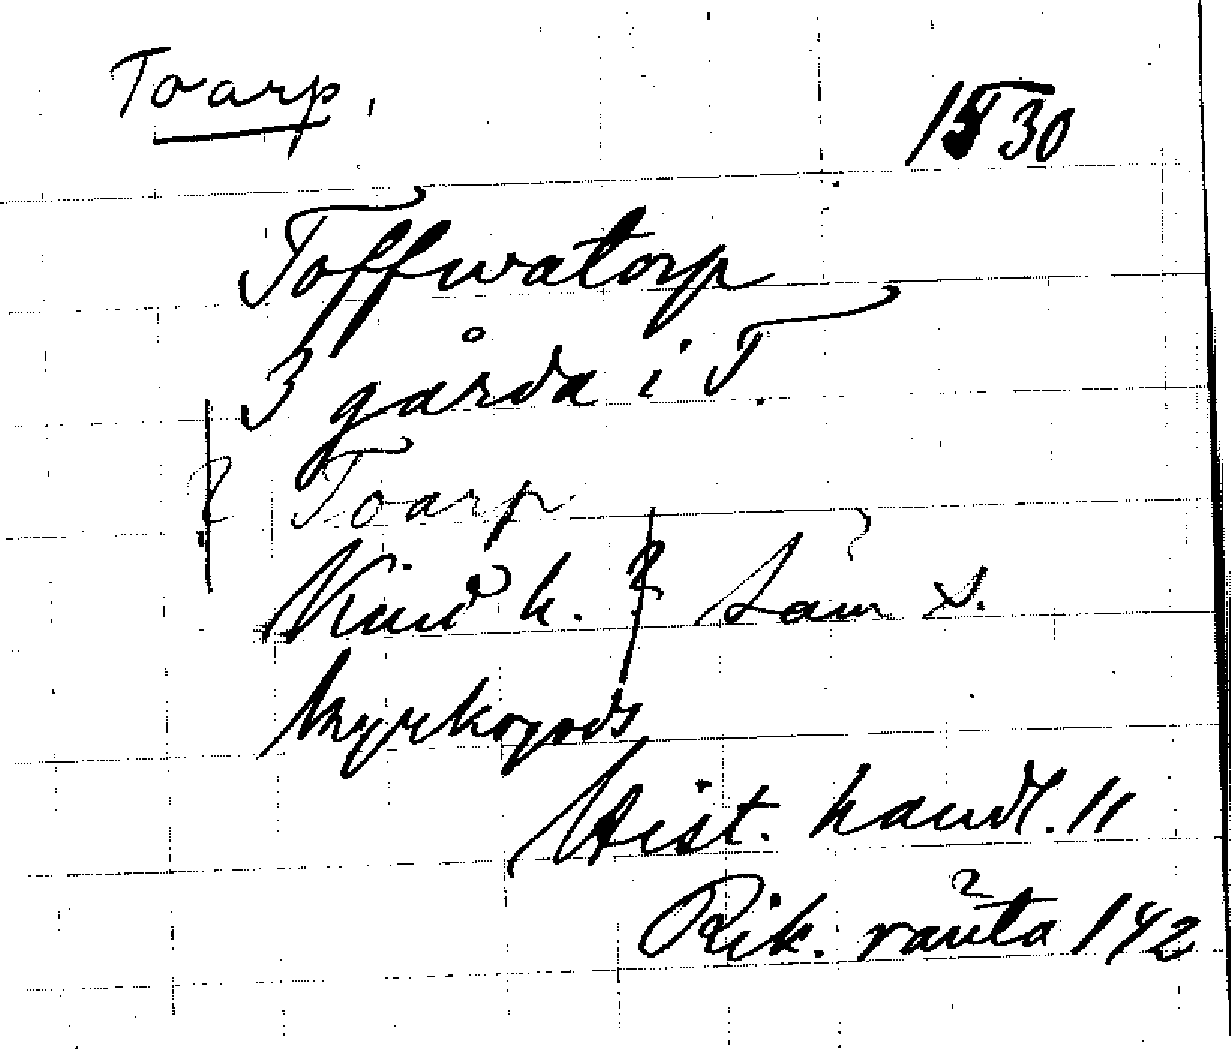 Toarp.
1530
Toffwatorp
3 gårda i T.
? Toarp
Kind h. ? Säm s.
kyrkogods
Hist. handl. 11
Rik. ränta 142